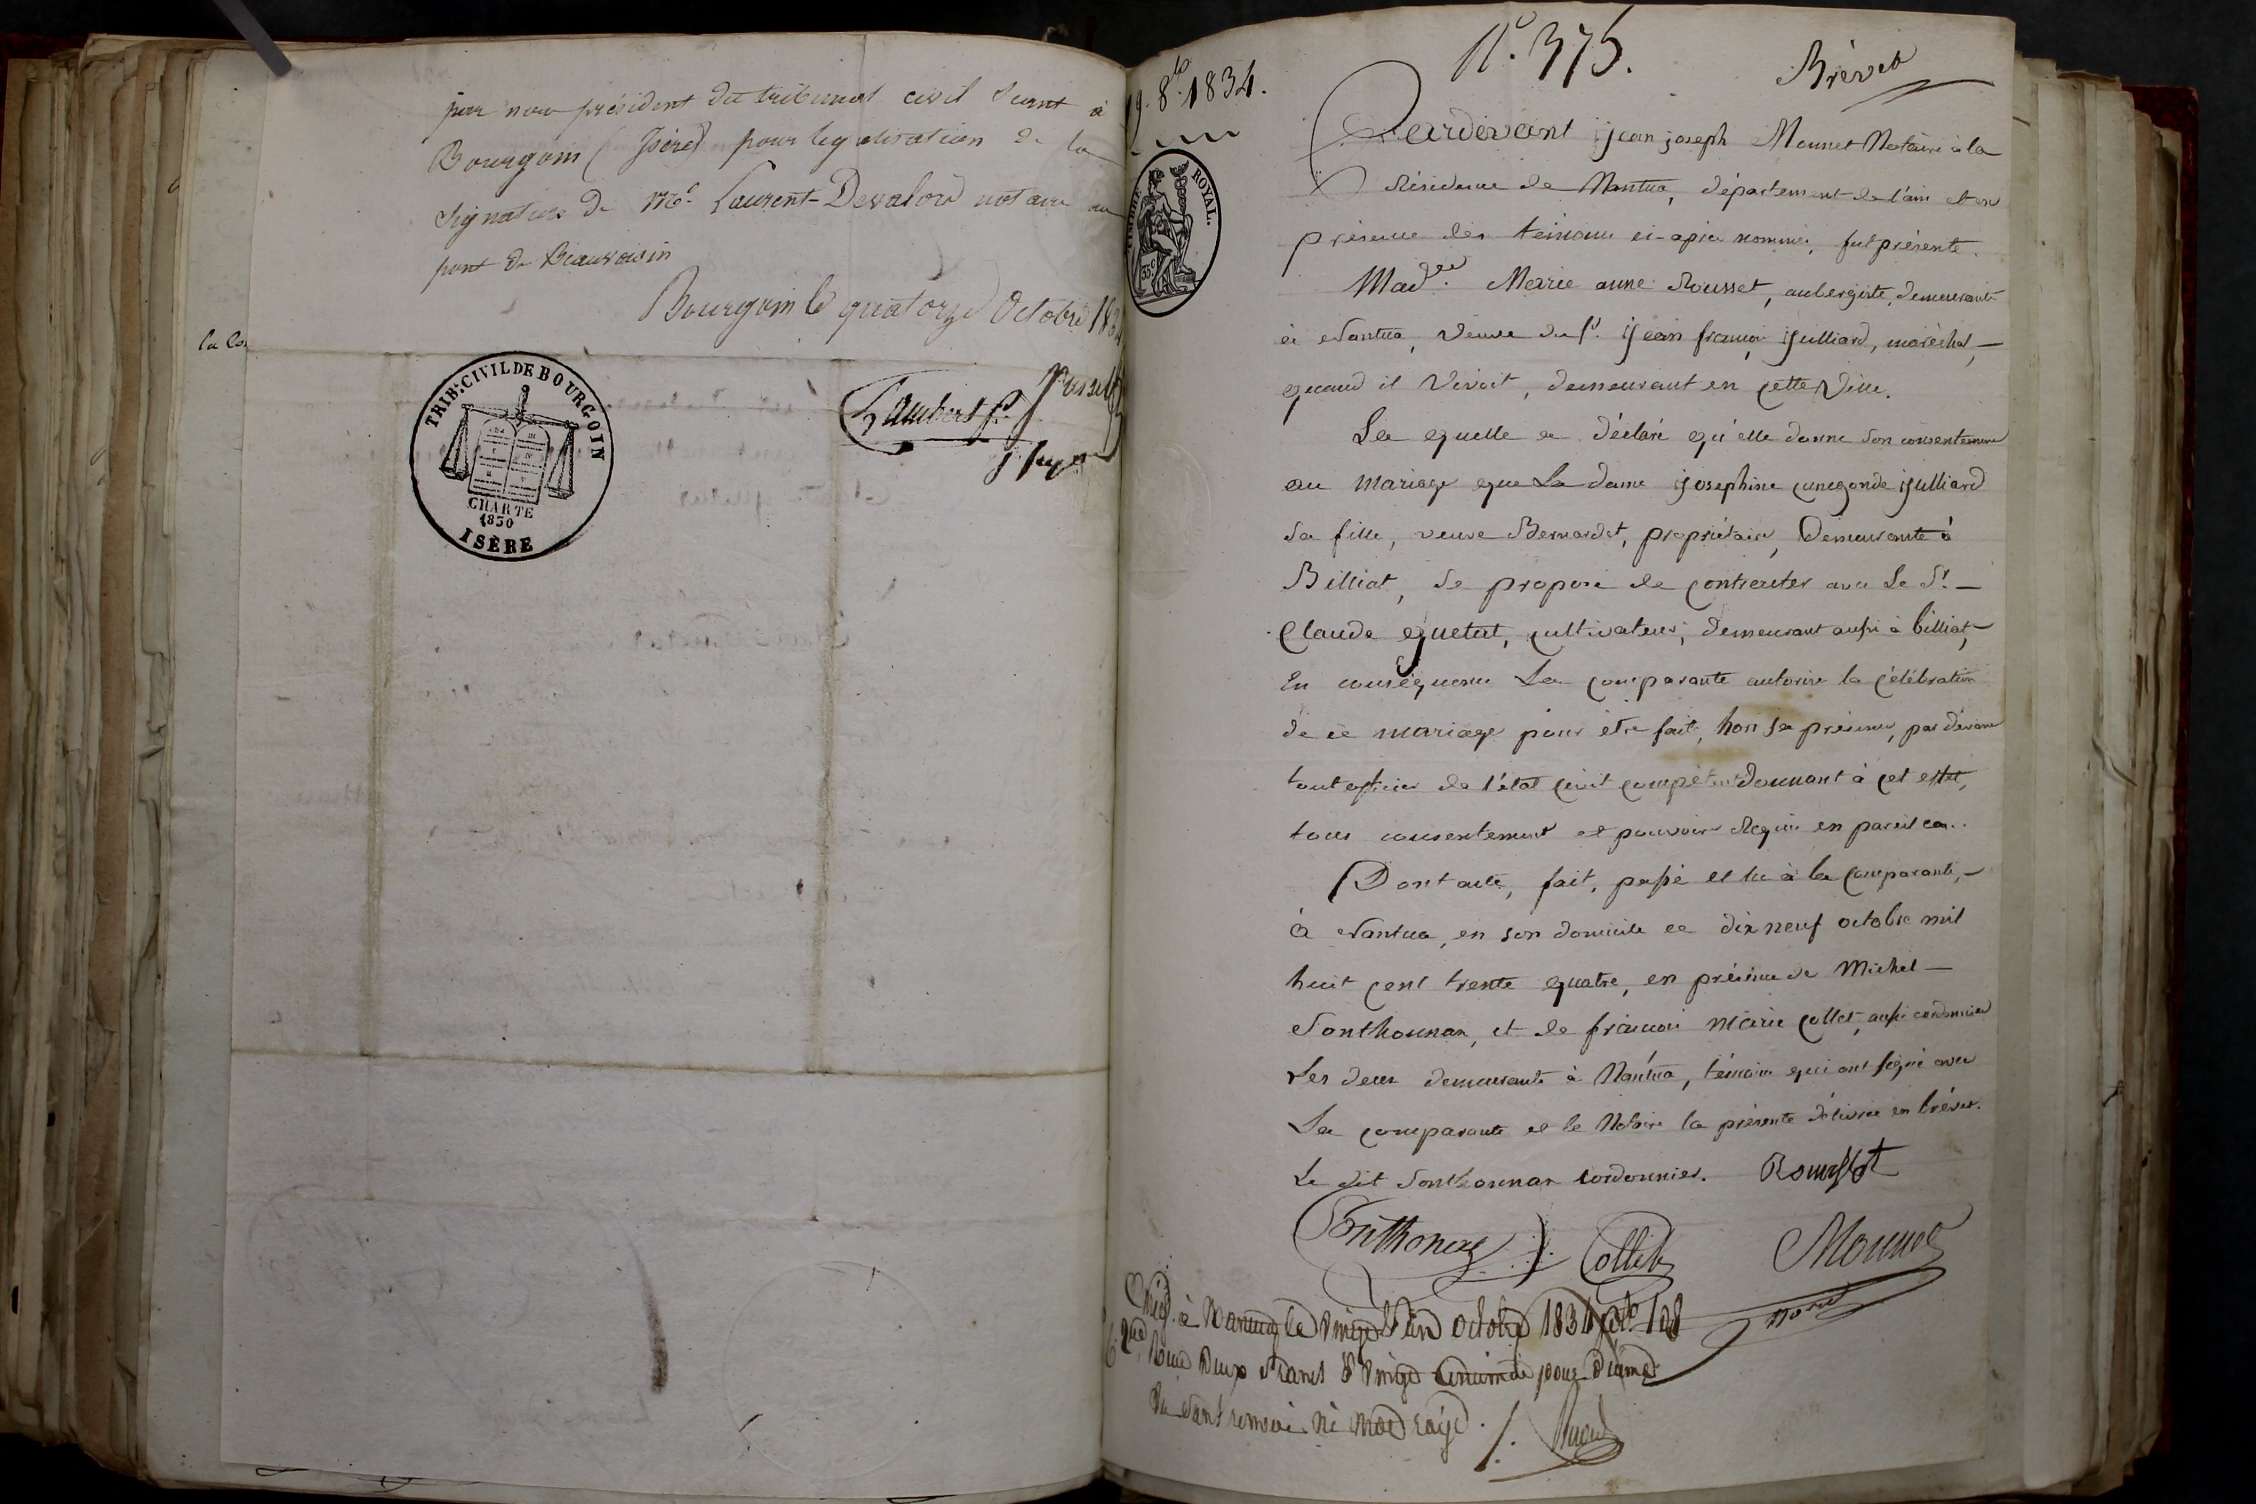 par nous président du tribunal civil séant à
Bourgoin (Isère) pour légalisation de la
signature de Me. Laurent-Devalors notaire au
pont de Beauvoisin
Bourgoin le quatorze Octobre 1834
la Co
TRIB: CIVIL DE BOURGOIN
CHARTE
1830
ISÈRE
Lambert
N°. 375.
19. 8bre 1834.
Brévet
TIMBRE ROYAL.
35c
Pardevant Jean joseph Monnet Notaire à la
Résidence de Nantua, département de l'ain et en
présence des témoins ci-après nommés, fut présente
Made. Marie anne Rousset, aubergiste, demeurante
à Nantua, veuve du Sr. Jean françois Julliard, maréchal,
quand il vivoit, demeurant en cette Ville.
La quelle a déclaré qu'elle donne son consentement
au mariage que La dame Josephine cunegonde Julliard
sa fille, veuve Bernardet, propriétaire, Demeurante à
Billiat, se propose de contracter avec Le Sr.
Claude quetat, cultivateur, demeurant aussi à billiat,
En conséquence La comparante autorise la célébration
de ce mariage pour être faite, hors sa présence, par devant
tout officier de l'état civil compétent donnant à cet effet,
tous consentement et pouvoirs Requis en pareil cas.
Dont acte, fait, passé et lu à la comparante,
à Nantua, en son domicile ce dix neuf octobre mil
huit cent trente quatre, en présence de Michel
Sonthonnax, et de françois Marie Collet, aussi cordonnier
Les deux demeurants à Nantua, témoins qui ont signé avec
La comparante et le Notaire la présente délivrée en brévet.
Le dit Sonthonnax cordonnier. Roussset
Sonthonax Collet Monnet
not.re
Enreg. à Nantua le vingt un octobre 1834 fo. 108
C. 2. Reçu deux francs vingt centimes pour dixième
sans renvoi ni mot rayé.